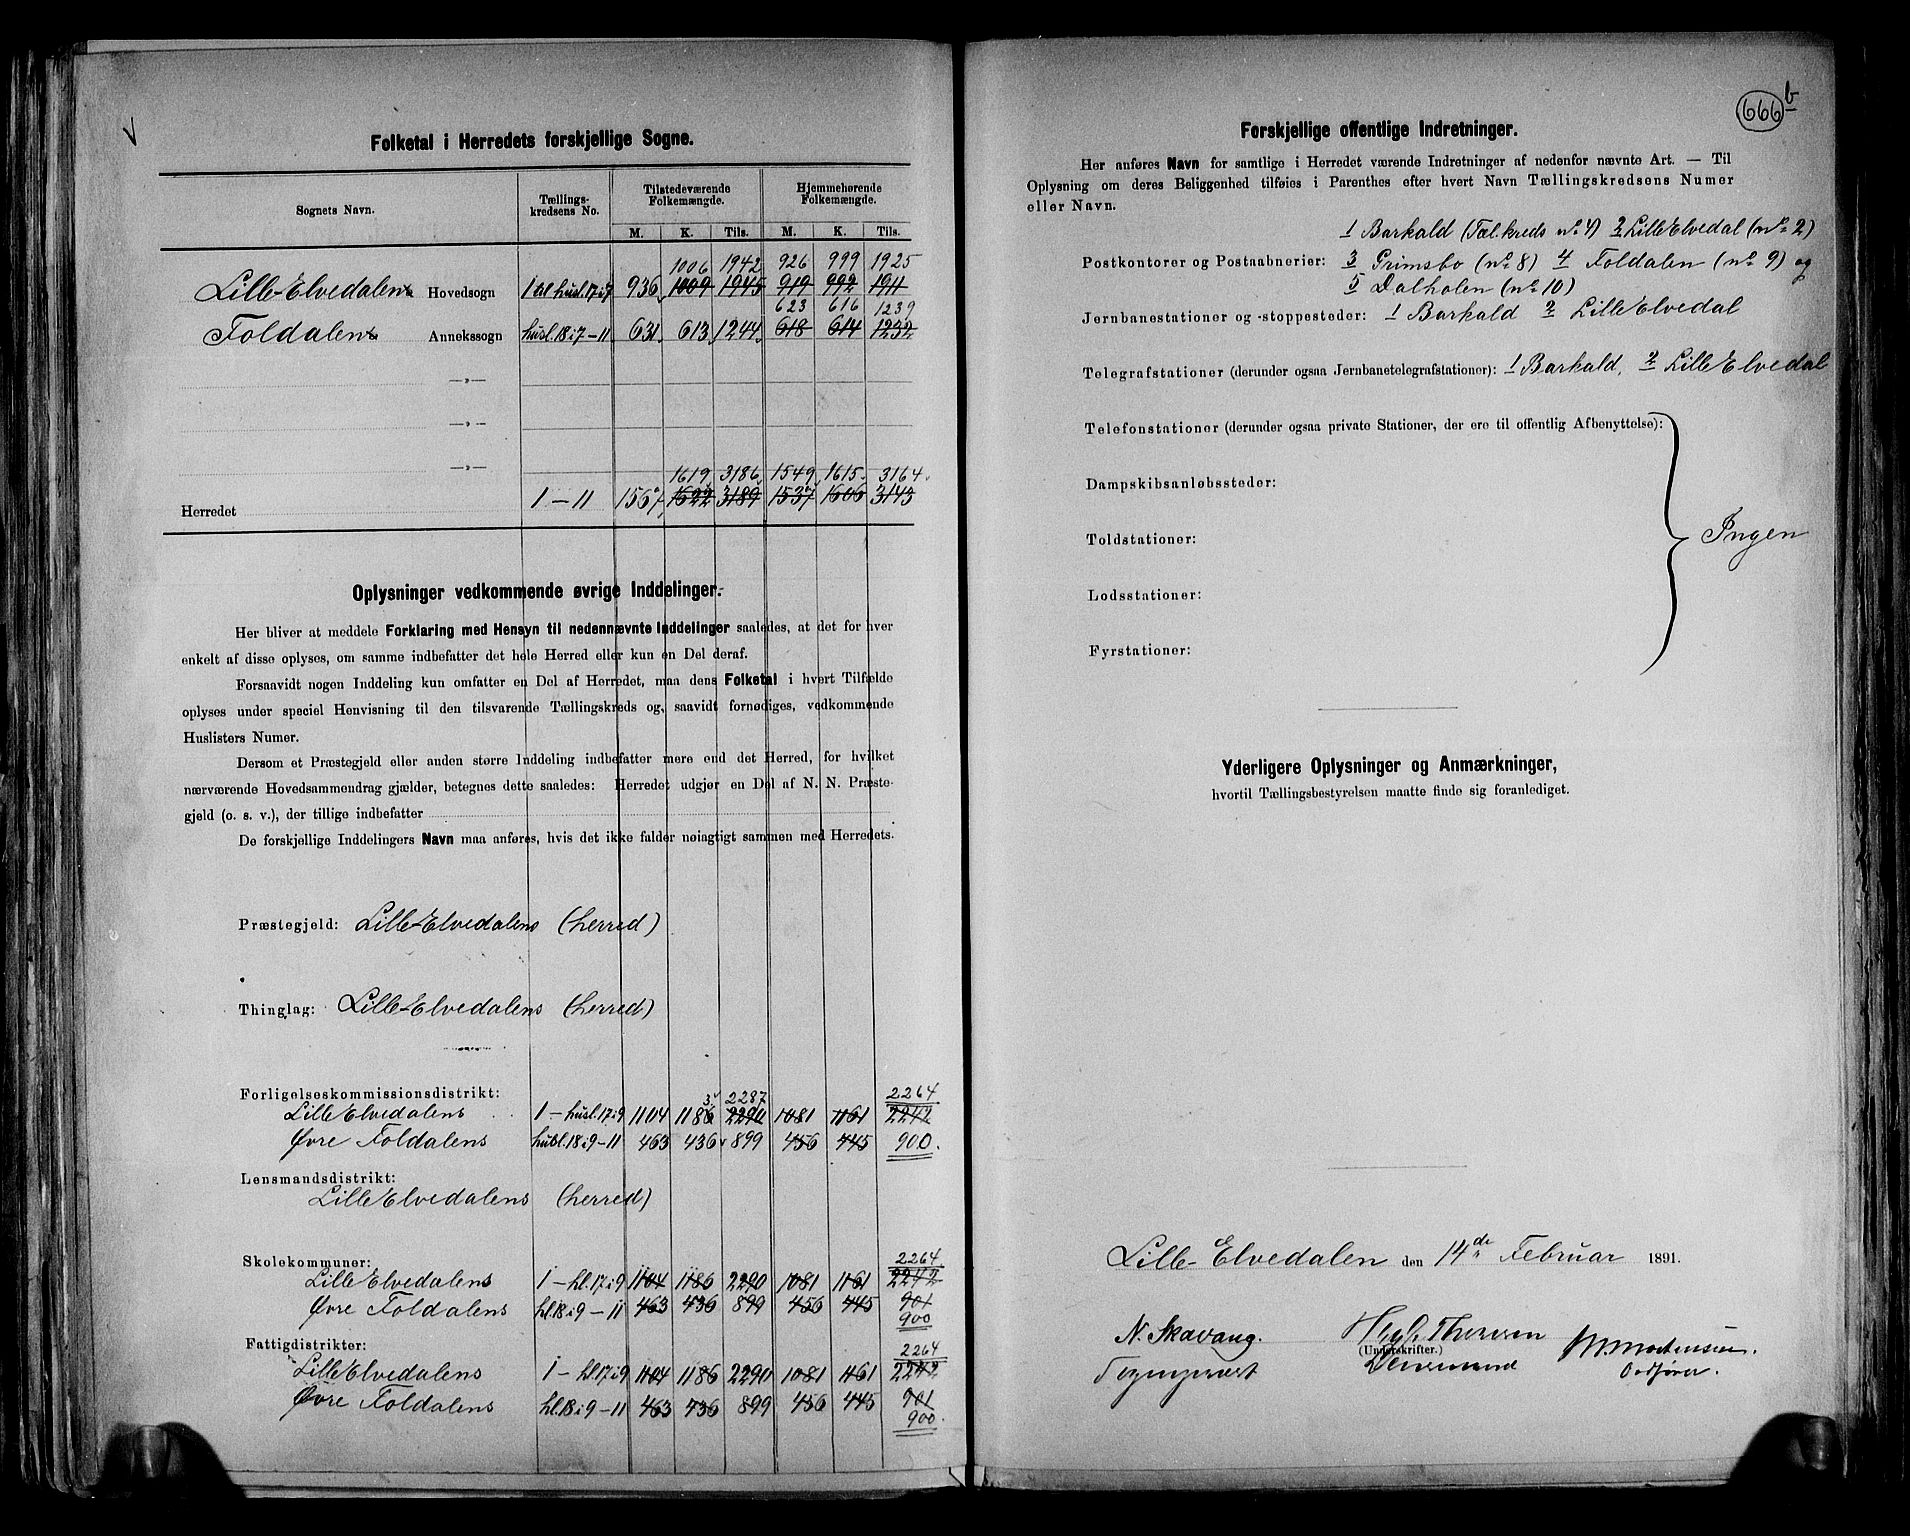 Folketal i Herredets forskjellige Sogne.
Sognets Navn. Tællingskredsens No. Tilstedeværende Folkemængde. Hjemmehørende Folkemængde.
M. K. Tils. M. K. Tils.
1006 1942 926 999 1925
Lille-Elvedalens Hovedsogn 1 til husl. 17 i 7 936 1009 1945 919 992 1911
623 616 1239
Foldalens Annekssogn husl. 18 i 7 – 11 631 613 1244 618 614 1232
—„—
—„—
—„—
1619 3186 1549 1615 3164
Herredet 1 – 11 1567 1622 3189 1537 1606 3143
Oplysninger vedkommende øvrige Inddelinger.
Her bliver at meddele Forklaring med Hensyn til nedennævnte Inddelinger saaledes, at det for hver
enkelt af disse oplyses, om samme indbefatter det hele Herred eller kun en Del deraf.
Forsaavidt nogen Inddeling kun omfatter en Del af Herredet, maa dens Folketal i hvert Tilfælde
oplyses under speciel Henvisning til den tilsvarende Tællingskreds og, saavidt fornødiges, vedkommende
Huslisters Numer.
Dersom et Præstegjeld eller anden større Inddeling indbefatter mere end det Herred, for hvilket
nærværende Hovedsammendrag gjælder, betegnes dette saaledes: Herredet udgjør en Del af N. N. Præste-
gjeld (o. s. v.), der tillige indbefatter
De forskjellige Inddelingers Navn maa anføres, hvis det ikke falder nøiagtigt sammen med Herredets.
Præstegjeld: Lille-Elvedalens (herred)
Thinglag: Lille-Elvedalens (herred)
Forligelseskommissionsdistrikt: 3 2287 2264
Lille Elvedalens 1 – husl. 17 i 9 1104 1186 2290 1081 1161 2242
Øvre Foldalens husl. 18 i 9 – 11 463 436 899 456 445 900
Lensmandsdistrikt:
Lille Elvedalens (herred)
Skolekommuner: 2264
Lille Elvedalens 1 – hl. 17 i 9 1104 1186 2290 1081 1161 2242
Øvre Foldalens hl. 18 i 9 – 11 463 436 899 456 445 901
900
Fattigdistrikter: 2264
Lille Elvedalens 1 – hl. 17 i 9 1104 1186 2290 1081 1161 2242
Øvre Foldalens hl. 18 i 9 – 11 463 436 899 456 445 901
900
666 b
Forskjellige offentlige Indretninger.
Her anføres Navn for samtlige i Herredet værende Indretninger af nedenfor nævnte Art. — Til
Oplysning om deres Beliggenhed tilføies i Parenthes efter hvert Navn Tællingskredsens Numer
eller Navn.
1 Barkald (Tæl.kreds nº 4) 2 Lille Elvedal (nº 2)
Postkontorer og Postaabnerier: 3 Grimsbo (nº 8) 4 Foldalen (nº 9) og
5 Dalholen (nº 10)
Jernbanestationer og -stoppesteder: 1 Barkald 2 Lille Elvedal
Telegrafstationer (derunder ogsaa Jernbanetelegrafstationer): 1 Barkald, 2 Lille Elvedal
Telefonstationer (derunder ogsaa private Stationer, der ere til offentlig Afbenyttelse):
Dampskibsanløbssteder:
Toldstationer: Ingen
Lodsstationer:
Fyrstationer:
Yderligere Oplysninger og Anmærkninger,
hvortil Tællingsbestyrelsen maatte finde sig foranlediget.
Lille-Elvedalen den 14de Februar 1891.
N. Skavang.
(Underskrifter.)
Ordfører.